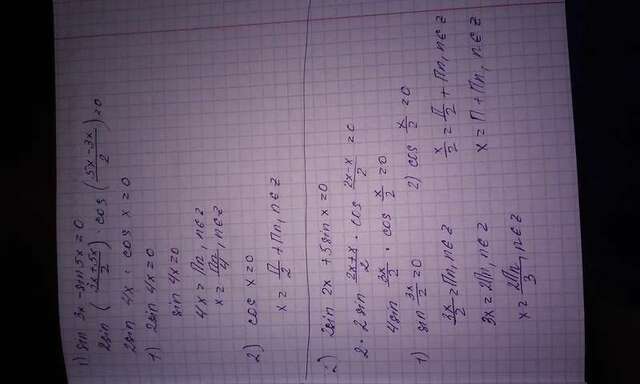 1) sin 3x - sin 5x = 0
2sin (3x+5x/2) · cos (5x-3x/2) = 0
2sin 4x · cos x = 0
1) 2sin 4x = 0
sin 4x = 0
4x = Пn, n∈z
x = Пn/4, n∈z
2) cos x = 0
x = П/2 + Пn, n∈z
2) 2sin 2x + 5sin x = 0
2·2sin 2x+x/2 · cos 2x-x/2 = 0
4sin 3x/2 · cos x/2 = 0
1) sin 3x/2 = 0
3x/2 = Пn, n∈z
3x = 2Пn, n∈z
x = 2Пn/3, n∈z
2) cos x/2 = 0
x/2 = П/2 + Пn, n∈z
x = П + Пn, n∈z